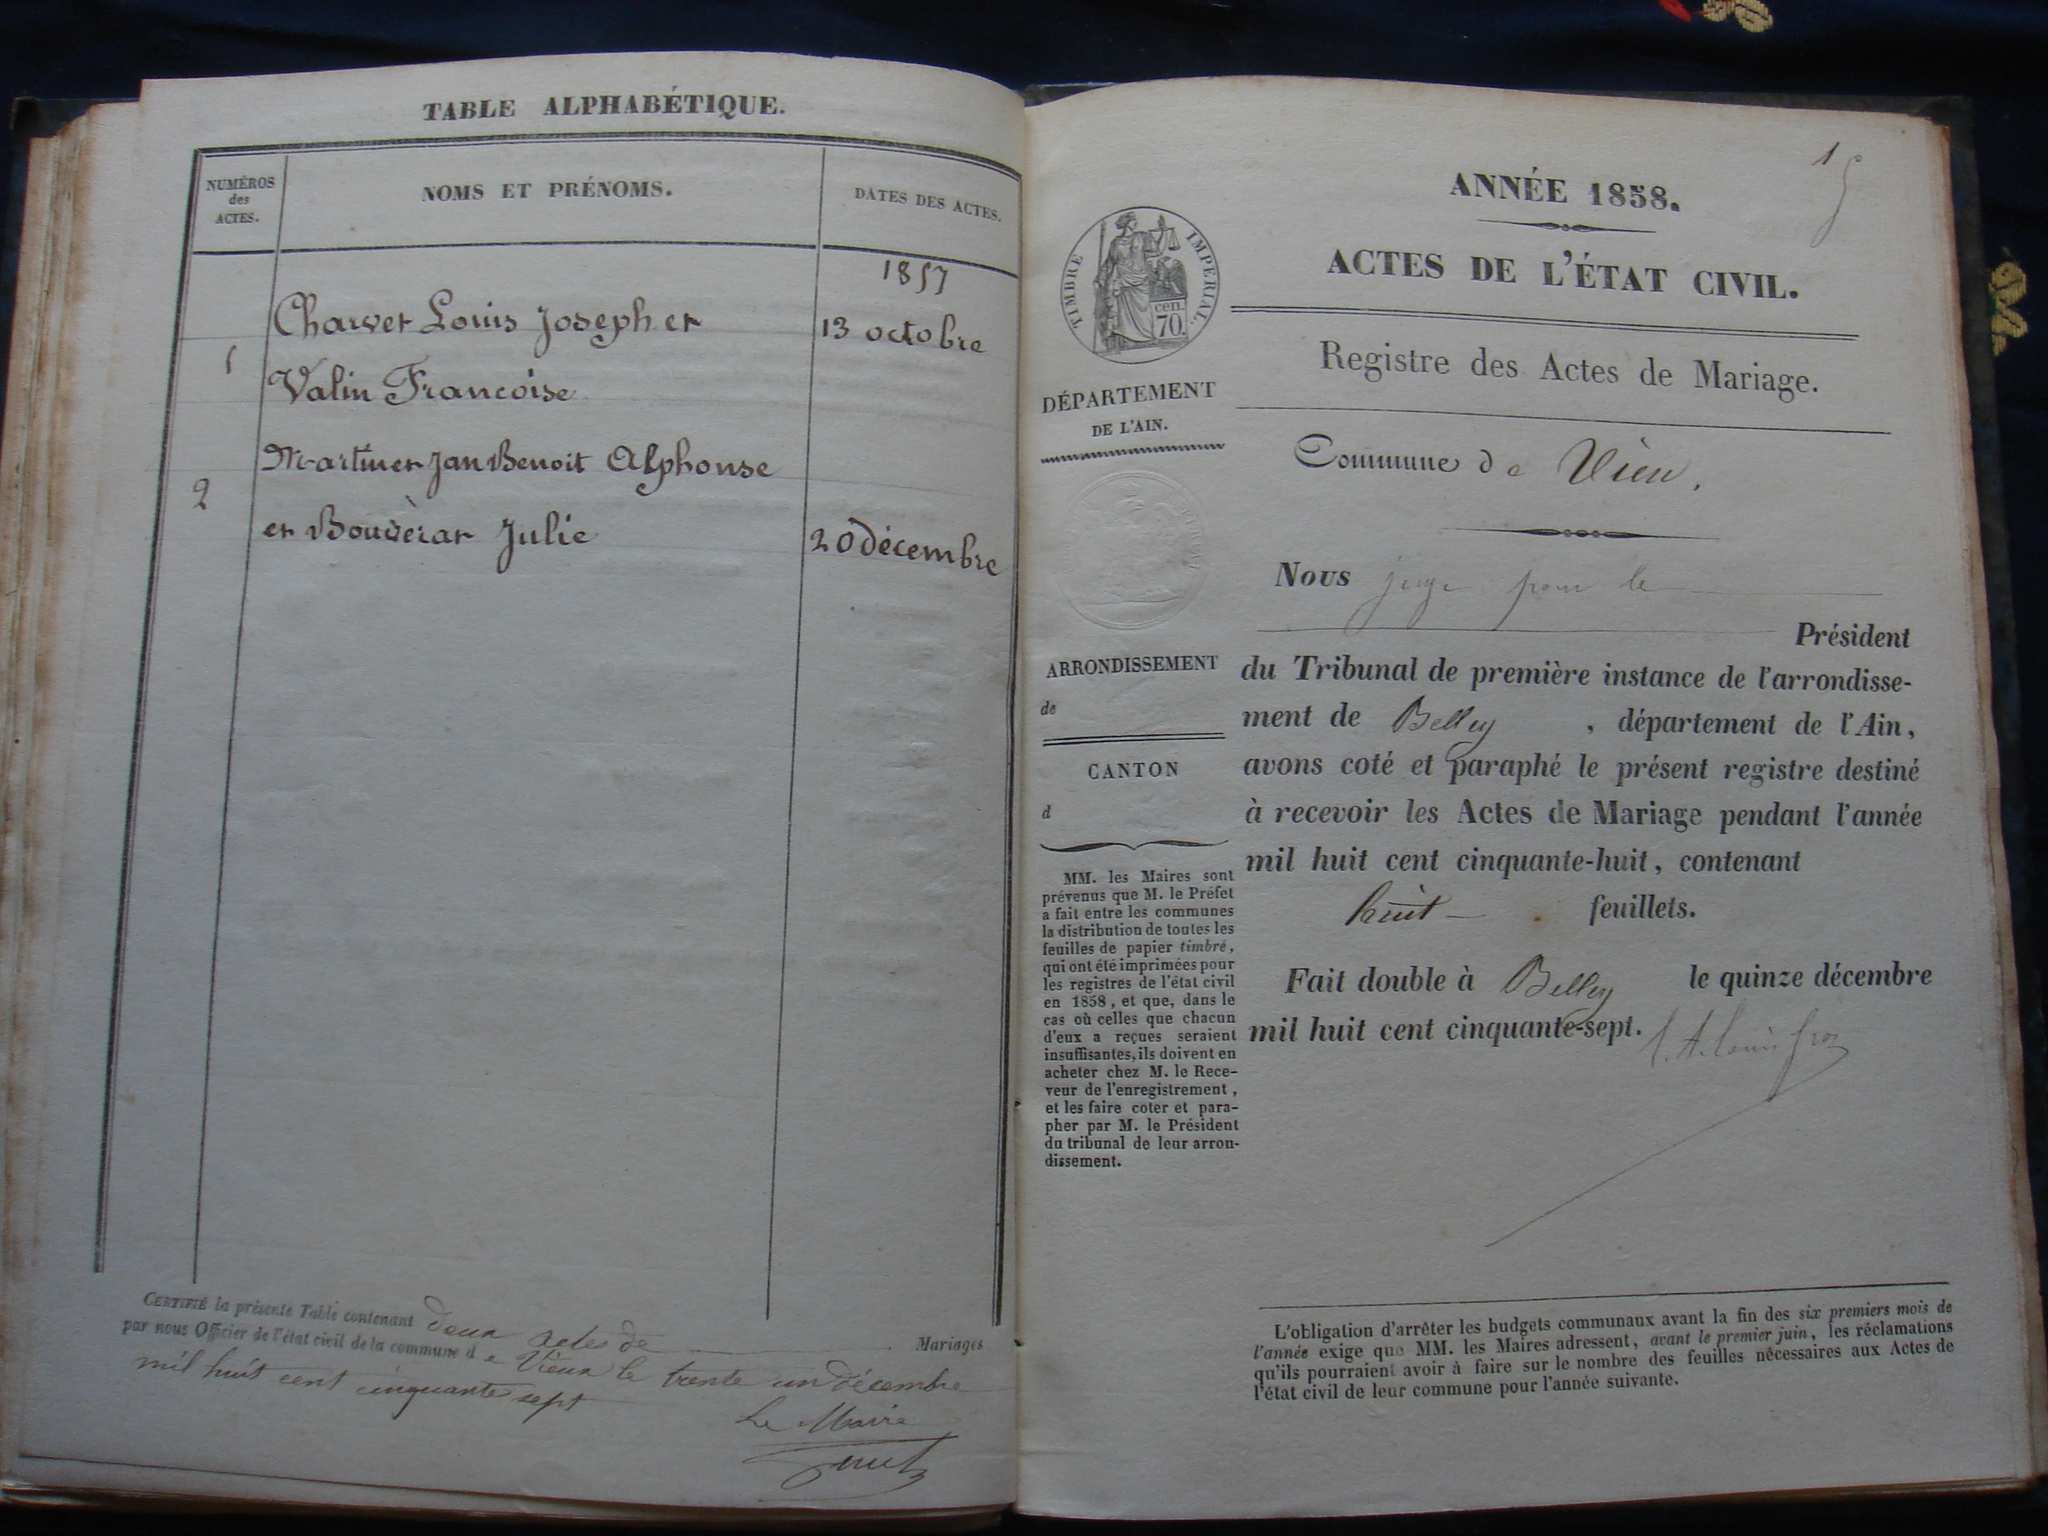 TABLE ALPHABÉTIQUE.
NUMÉROS
des
ACTES.
NOMS ET PRÉNOMS.
DATES DES ACTES.
1857
Charvet Louis Joseph et
13 octobre
1
Valin Francoise
Martinet Jan Benoit Alphonse
2
et Bouvèrat Julie
20 décembre
CERTIFIÉ la présente Table contenant deux actes de Mariages
par nous Officier de l'état civil de la commune de Vieux le trente un décembre
mil huit cent cinquante sept
Le Maire
1
ANNÉE 1858.
ACTES DE L'ÉTAT CIVIL.
TIMBRE IMPERIAL.
cen.
70.
Registre des Actes de Mariage.
DÉPARTEMENT
DE L'AIN.
Commune de Vieu.
Nous juge pour le
Président
du Tribunal de première instance de l'arrondisse-
ment de Belley, département de l'Ain,
avons coté et paraphé le présent registre destiné
à recevoir les Actes de Mariage pendant l'année
mil huit cent cinquante-huit, contenant
huit feuillets.
Fait double à Belley le quinze décembre
mil huit cent cinquante-sept.
ARRONDISSEMENT
de
CANTON
d
MM. les Maires sont
prévenus que M. le Préfet
a fait entre les communes
la distribution de toutes les
feuilles de papier timbré,
qui ont été imprimées pour
les registres de l'état civil
en 1858, et que, dans le
cas où celles que chacun
d'eux a reçues seraient
insuffisantes, ils doivent en
acheter chez M. le Rece-
veur de l'enregistrement,
et les faire coter et para-
pher par M. le Président
du tribunal de leur arron-
dissement.
L'obligation d'arrêter les budgets communaux avant la fin des six premiers mois de
l'année exige que MM. les Maires adressent, avant le premier juin, les réclamations
qu'ils pourraient avoir à faire sur le nombre des feuilles nécessaires aux Actes de
l'état civil de leur commune pour l'année suivante.